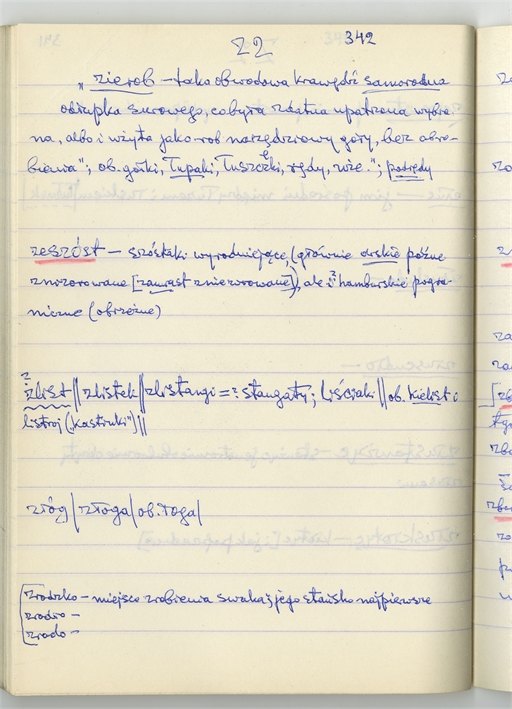 22 342
„zierob – tako obwodowa krawędź samorodna
odłupka surowego, co była zdatna upatrzona wybra-
na, albo i użyta jako rob narzędziowy goły, bez obro-
bienia"; ob. gółki, łupaki, łuszczki, rzędy, rże."; podrzędy
zeszóst – szóstaki wyrodniejące, (głównie orskie późne
znizorowane [zamiast zniezworowane]), ale i ? hamburskie pogra-
niczne (obrzeżne)
?
zlist || zlistek || zlistangi = ? stangaty; liściaki || ob. kielist i
listroj („kastruki") ||
złóg | złoga | ob. łoga |
zrodzko – miejsce zrobienia swaka i jego stańsko najpierwsze
zrodio –
zrado –